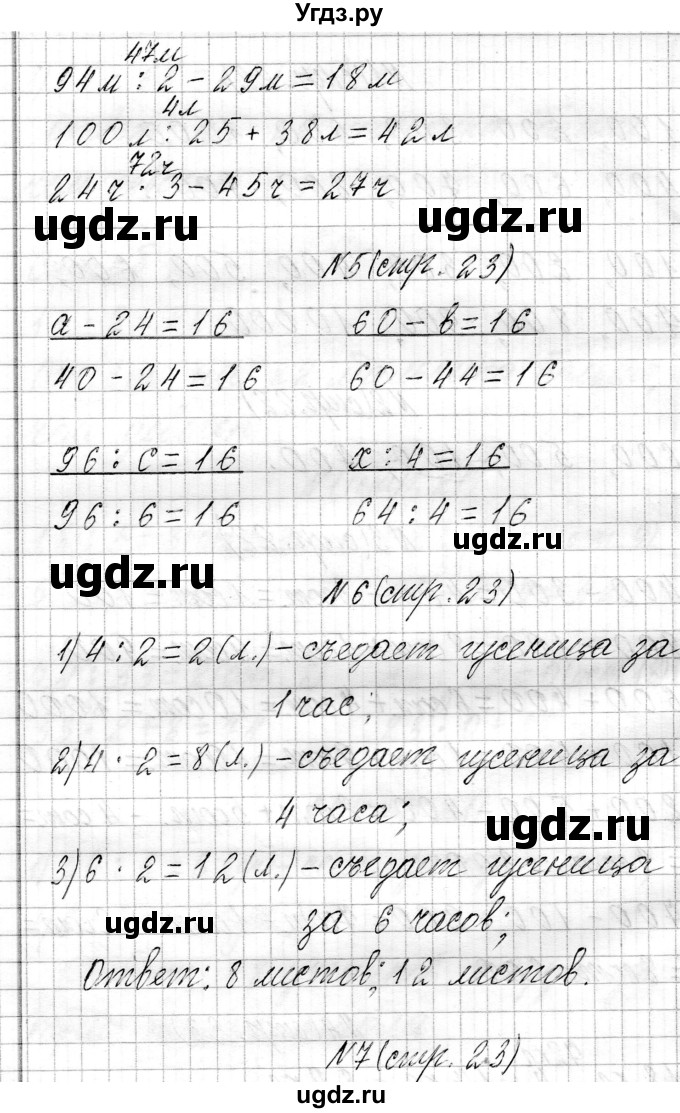 Угдз.ру
47м
94м : 2 - 29м = 18м
4л
100л : 25 + 38л = 42л
72ч
24ч · 3 - 45ч = 27ч
ugdz.ru ugdz.ru
№5 (стр. 23)
а - 24 = 16 60 - в = 16
40 - 24 = 16 60 - 44 = 16
96 : с = 16 х : 4 = 16
96 : 6 = 16 64 : 4 = 16
ugdz.ru
ugdz.ru
№6 (стр. 23)
1) 4 : 2 = 2 (л.) - съедает гусеница за
1 час;
2) 4 · 2 = 8 (л.) - съедает гусеница за
4 часа;
ugdz.ru
3) 6 · 2 = 12 (л.) - съедает гусеница
за 6 часов;
ugdz.ru
Ответ: 8 листов; 12 листов.
№7 (стр. 23)
ugdz.ru